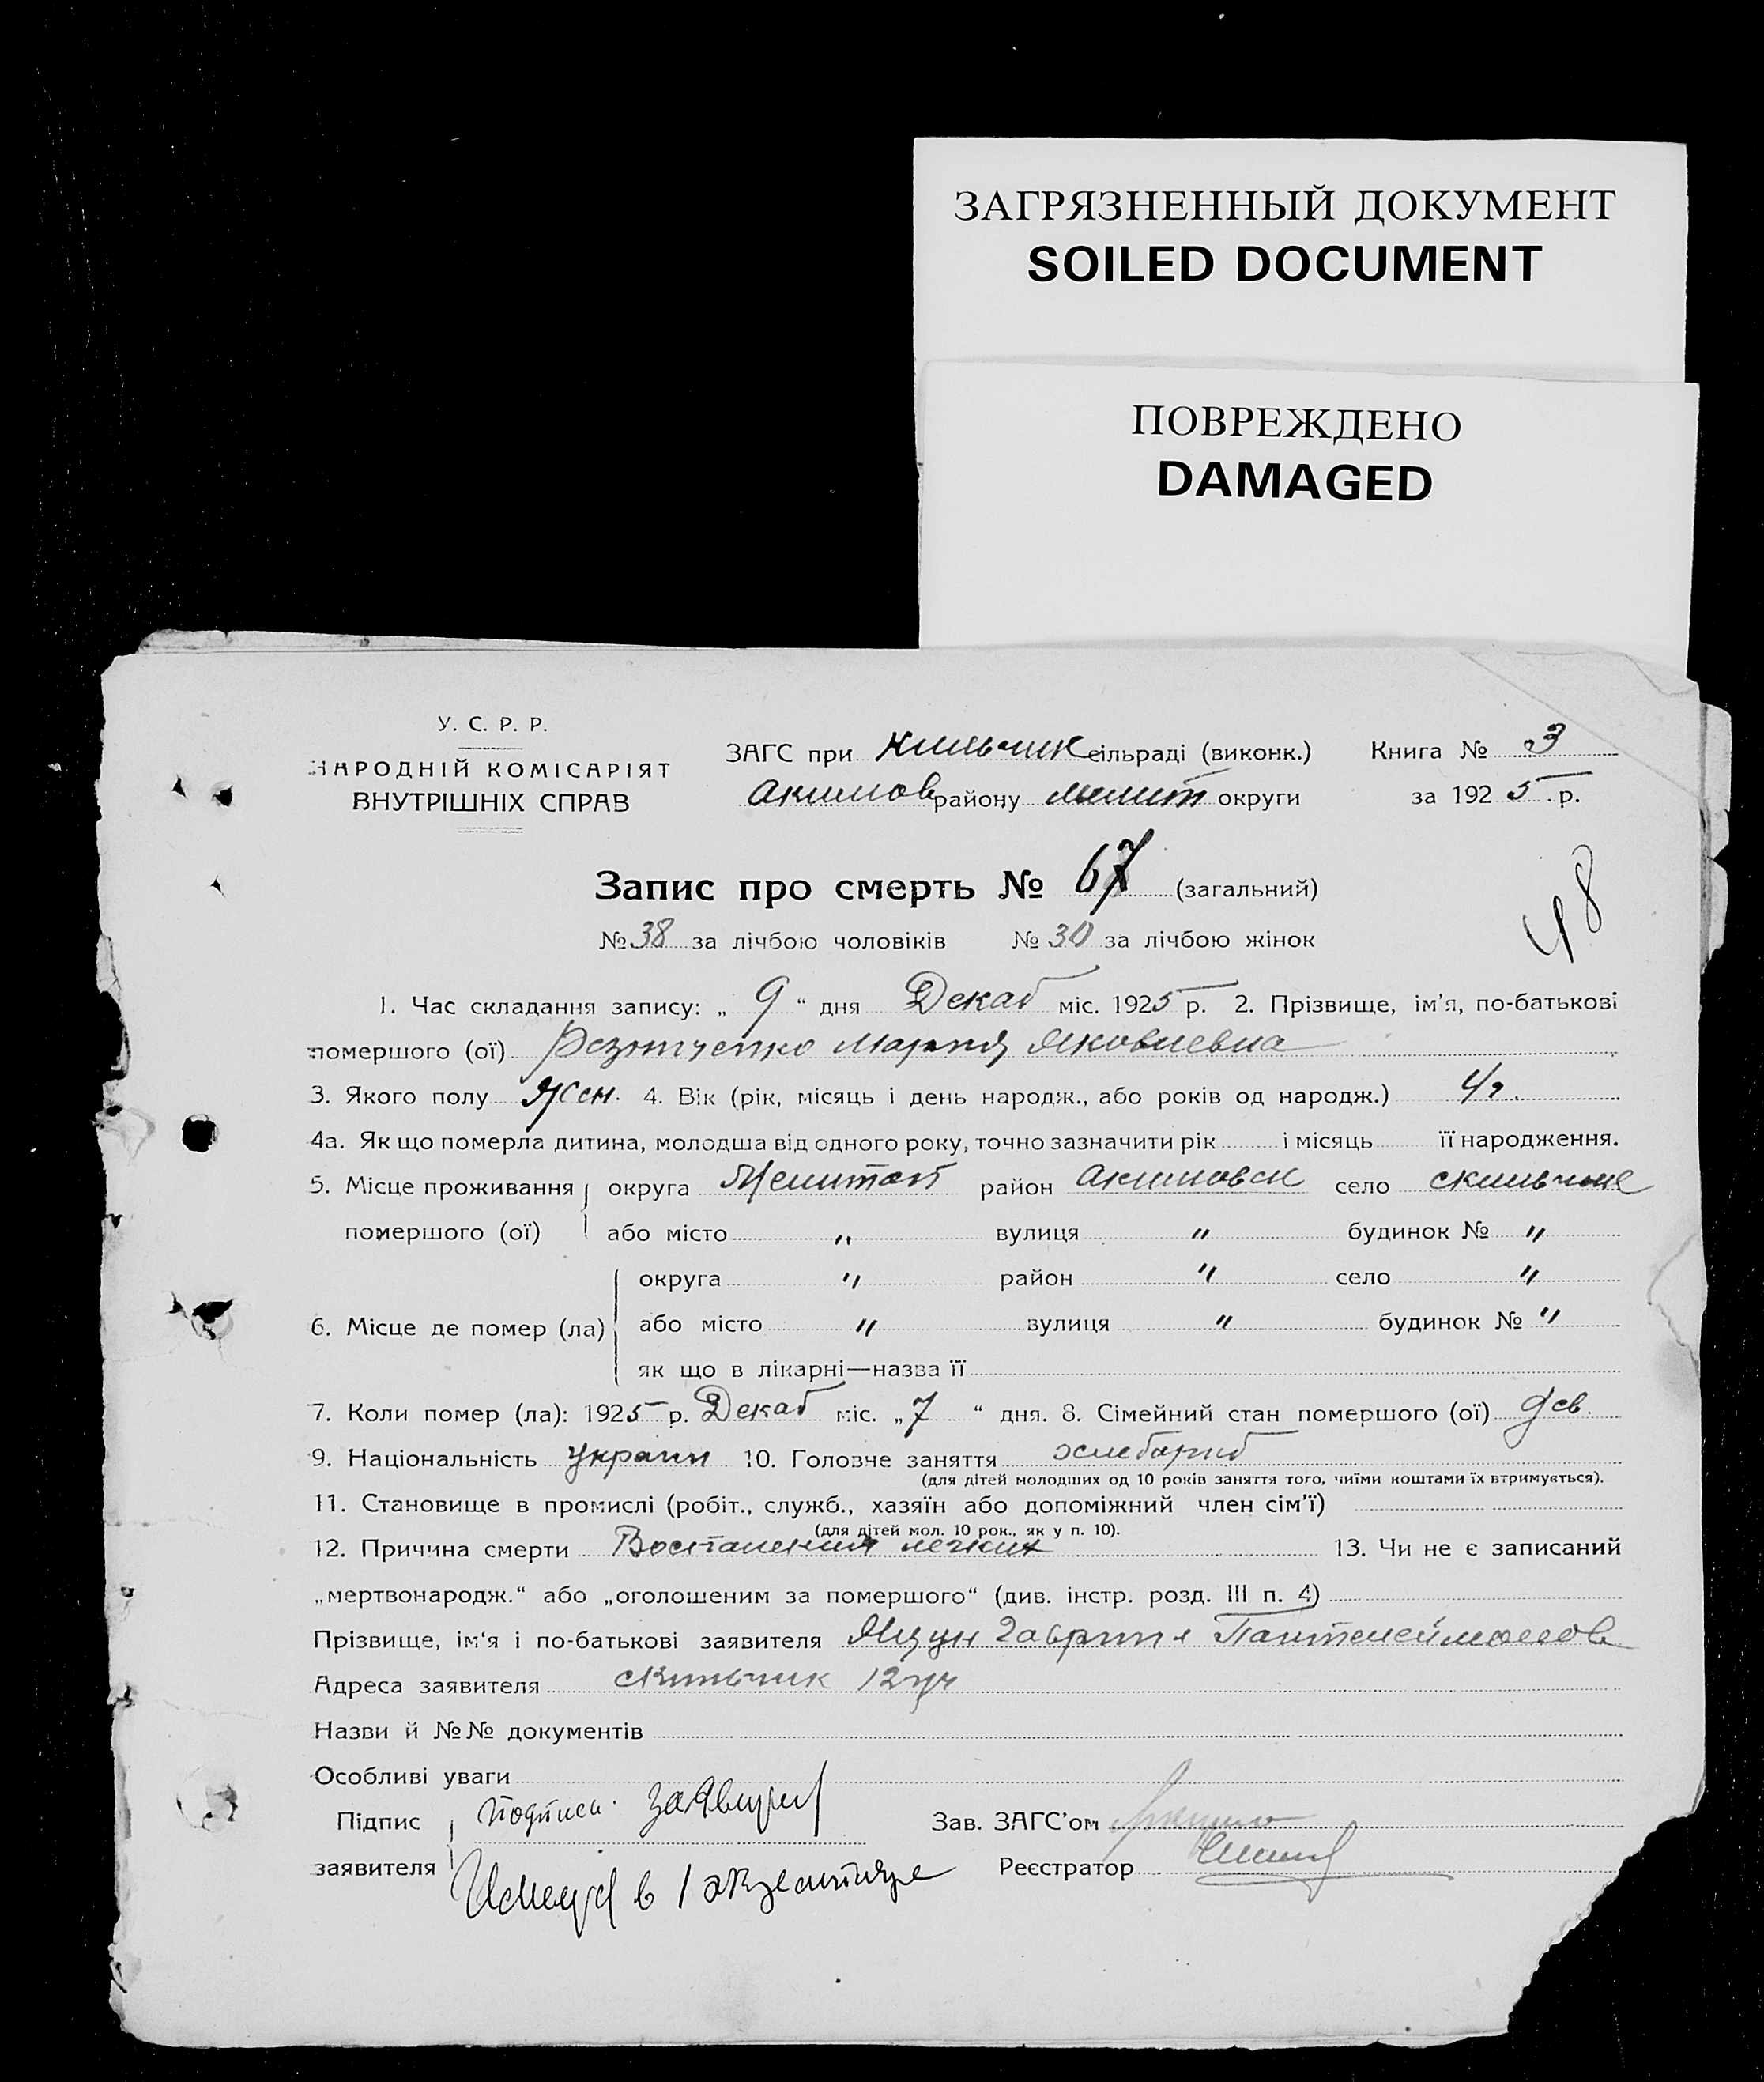 ЗАГРЯЗНЕННЫЙ ДОКУМЕНТ
SOILED DOCUMENT
ПОВРЕЖДЕНО
DAMAGED
У. С. Р. Р.
НАРОДНІЙ КОМІСАРІЯТ
ВНУТРІШНІХ СПРАВ
ЗАГС при сільраді (виконк.)
Акимов району Мелит округи
Книга № 3
за 1925 р.
48
Запис про смерть № 67 (загальний)
№ 38 за лічбою чоловіків № 30 за лічбою жінок
1. Час складання запису: „ 9 “ дня Декаб міс. 1925 р. 2. Прізвище, ім’я, по-батькові
помершого (ої) Яковлевна
3. Якого полу жен. 4. Вік (рік, місяць і день народж., або років од народж.) 4 г.
4а. Як що померла дитина, молодша від одного року, точно зазначити рік і місяць її народження.
5. Місце проживання округа Мелитоп район Акимовск село
помершого (ої) або місто „ вулиця „ будинок № „
округа „ район „ село „
6. Місце де помер (ла) або місто „ вулиця „ будинок № „
як що в лікарні—назва її
7. Коли помер (ла): 1925 р. Декаб міс. „ 7 “ дня. 8. Сімейний стан помершого (ої) дев.
9. Національність украин 10. Головне заняття хлебороб
(для дітей молодших од 10 років заняття того, чиїми коштами їх втримується).
11. Становище в промислі (робіт., служб., хазяїн або допоміжний член сім’ї)
(для дітей мол. 10 рок., як у п. 10).
12. Причина смерти Воспаления легких 13. Чи не є записаний
„мертвонародж.“ або „оголошеним за помершого“ (див. інстр. розд. III п. 4)
Прізвище, ім‘я і по-батькові заявителя Яцун Гаврил Пантелеймонов
Адреса заявителя 12 уч
Назви й №№ документів
Особливі уваги
Підпис подписи Зав. ЗАГС’ом
заявителя в 1 экземпляре Реєстратор